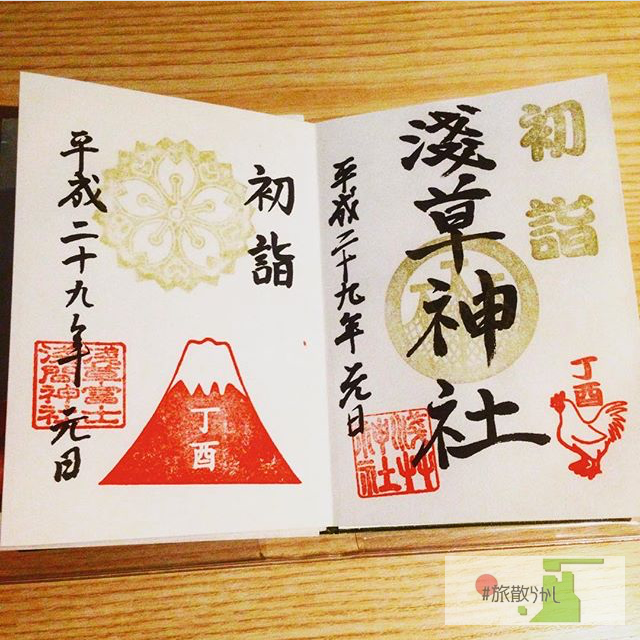 初詣
淺草神社
平成二十九年元日
丁酉
浅草神社
初詣
平成二十九年元日
丁酉
浅草富士
浅間神社
#旅散らかし